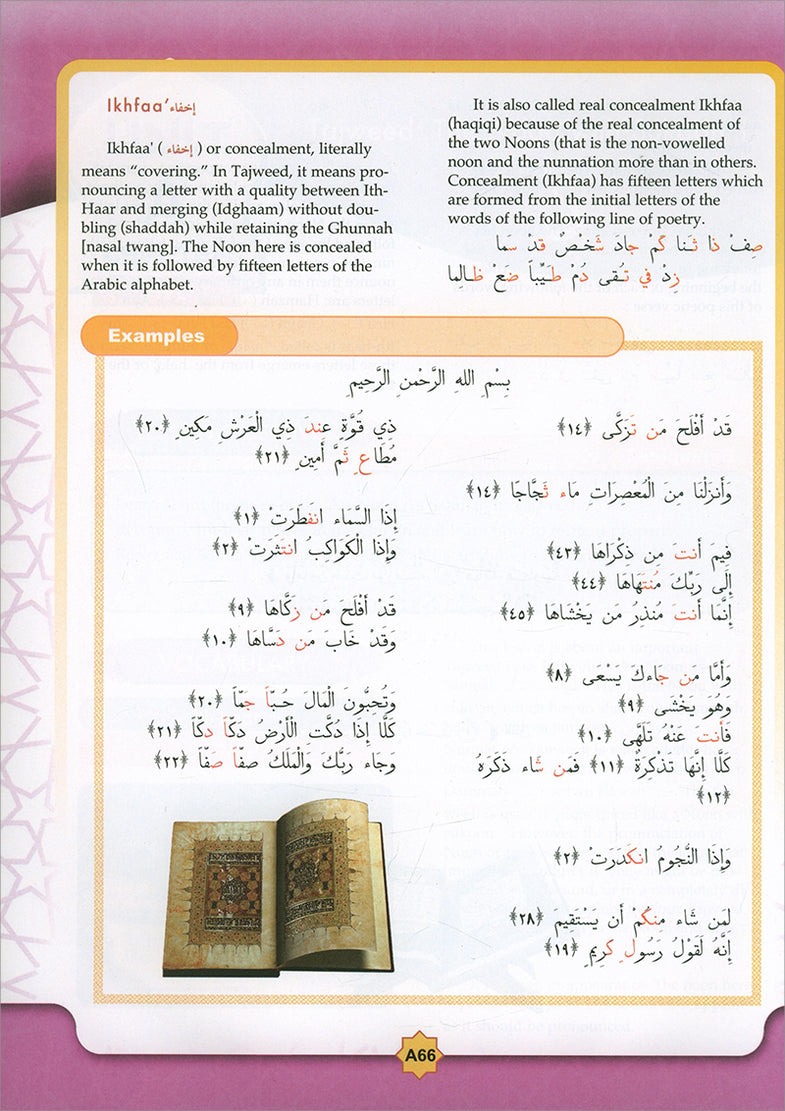 Ikhfaa' إخفاء
Ikhfaa' ( إخفاء ) or concealment, literally
means “covering.” In Tajweed, it means pro-
nouncing a letter with a quality between Ith-
Haar and merging (Idghaam) without dou-
bling (shaddah) while retaining the Ghunnah
[nasal twang]. The Noon here is concealed
when it is followed by fifteen letters of the
Arabic alphabet.
It is also called real concealment Ikhfaa
(haqiqi) because of the real concealment of
the two Noons (that is the non-vowelled
noon and the nunnation more than in others.
Concealment (Ikhfaa) has fifteen letters which
are formed from the initial letters of the
words of the following line of poetry.
صِفْ ذا ثَـنا كَمْ جادَ شَخْصٌ قدْ سَما
زِدْ في تـُقى دُمْ طَيِّباً ضَعْ ظـالِما
Examples
بِسْمِ اللهِ الرَّحْمنِ الرَّحِيمِ
قَدْ أَفْلَحَ مَن تَزَكَّى ﴿١٤﴾
وَأَنزَلْنَا مِنَ الْمُعْصِرَاتِ مَاء ثَجَّاجًا ﴿١٤﴾
فِيمَ أَنتَ مِن ذِكْرَاهَا ﴿٤٣﴾
إِلَى رَبِّكَ مُنتَهَاهَا ﴿٤٤﴾
إِنَّمَا أَنتَ مُنذِرُ مَن يَخْشَاهَا ﴿٤٥﴾
وَأَمَّا مَن جَاءكَ يَسْعَى ﴿٨﴾
وَهُوَ يَخْشَى ﴿٩﴾
فَأَنتَ عَنْهُ تَلَهَّى ﴿١٠﴾
كَلَّا إِنَّهَا تَذْكِرَةٌ ﴿١١﴾ فَمَن شَاء ذَكَرَهُ
﴿١٢﴾
وَإِذَا النُّجُومُ انكَدَرَتْ ﴿٢﴾
لِمَن شَاء مِنكُمْ أَن يَسْتَقِيمَ ﴿٢٨﴾
إِنَّهُ لَقَوْلُ رَسُولٍ كَرِيمٍ ﴿١٩﴾
ذِي قُوَّةٍ عِندَ ذِي الْعَرْشِ مَكِينٍ ﴿٢٠﴾
مُطَاعٍ ثَمَّ أَمِينٍ ﴿٢١﴾
إِذَا السَّمَاء انفَطَرَتْ ﴿١﴾
وَإِذَا الْكَوَاكِبُ انتَثَرَتْ ﴿٢﴾
قَدْ أَفْلَحَ مَن زَكَّاهَا ﴿٩﴾
وَقَدْ خَابَ مَن دَسَّاهَا ﴿١٠﴾
وَتُحِبُّونَ الْمَالَ حُبّاً جَمّاً ﴿٢٠﴾
كَلَّا إِذَا دُكَّتِ الْأَرْضُ دَكّاً دَكّاً ﴿٢١﴾
وَجَاء رَبُّكَ وَالْمَلَكُ صَفّاً صَفّاً ﴿٢٢﴾
A66